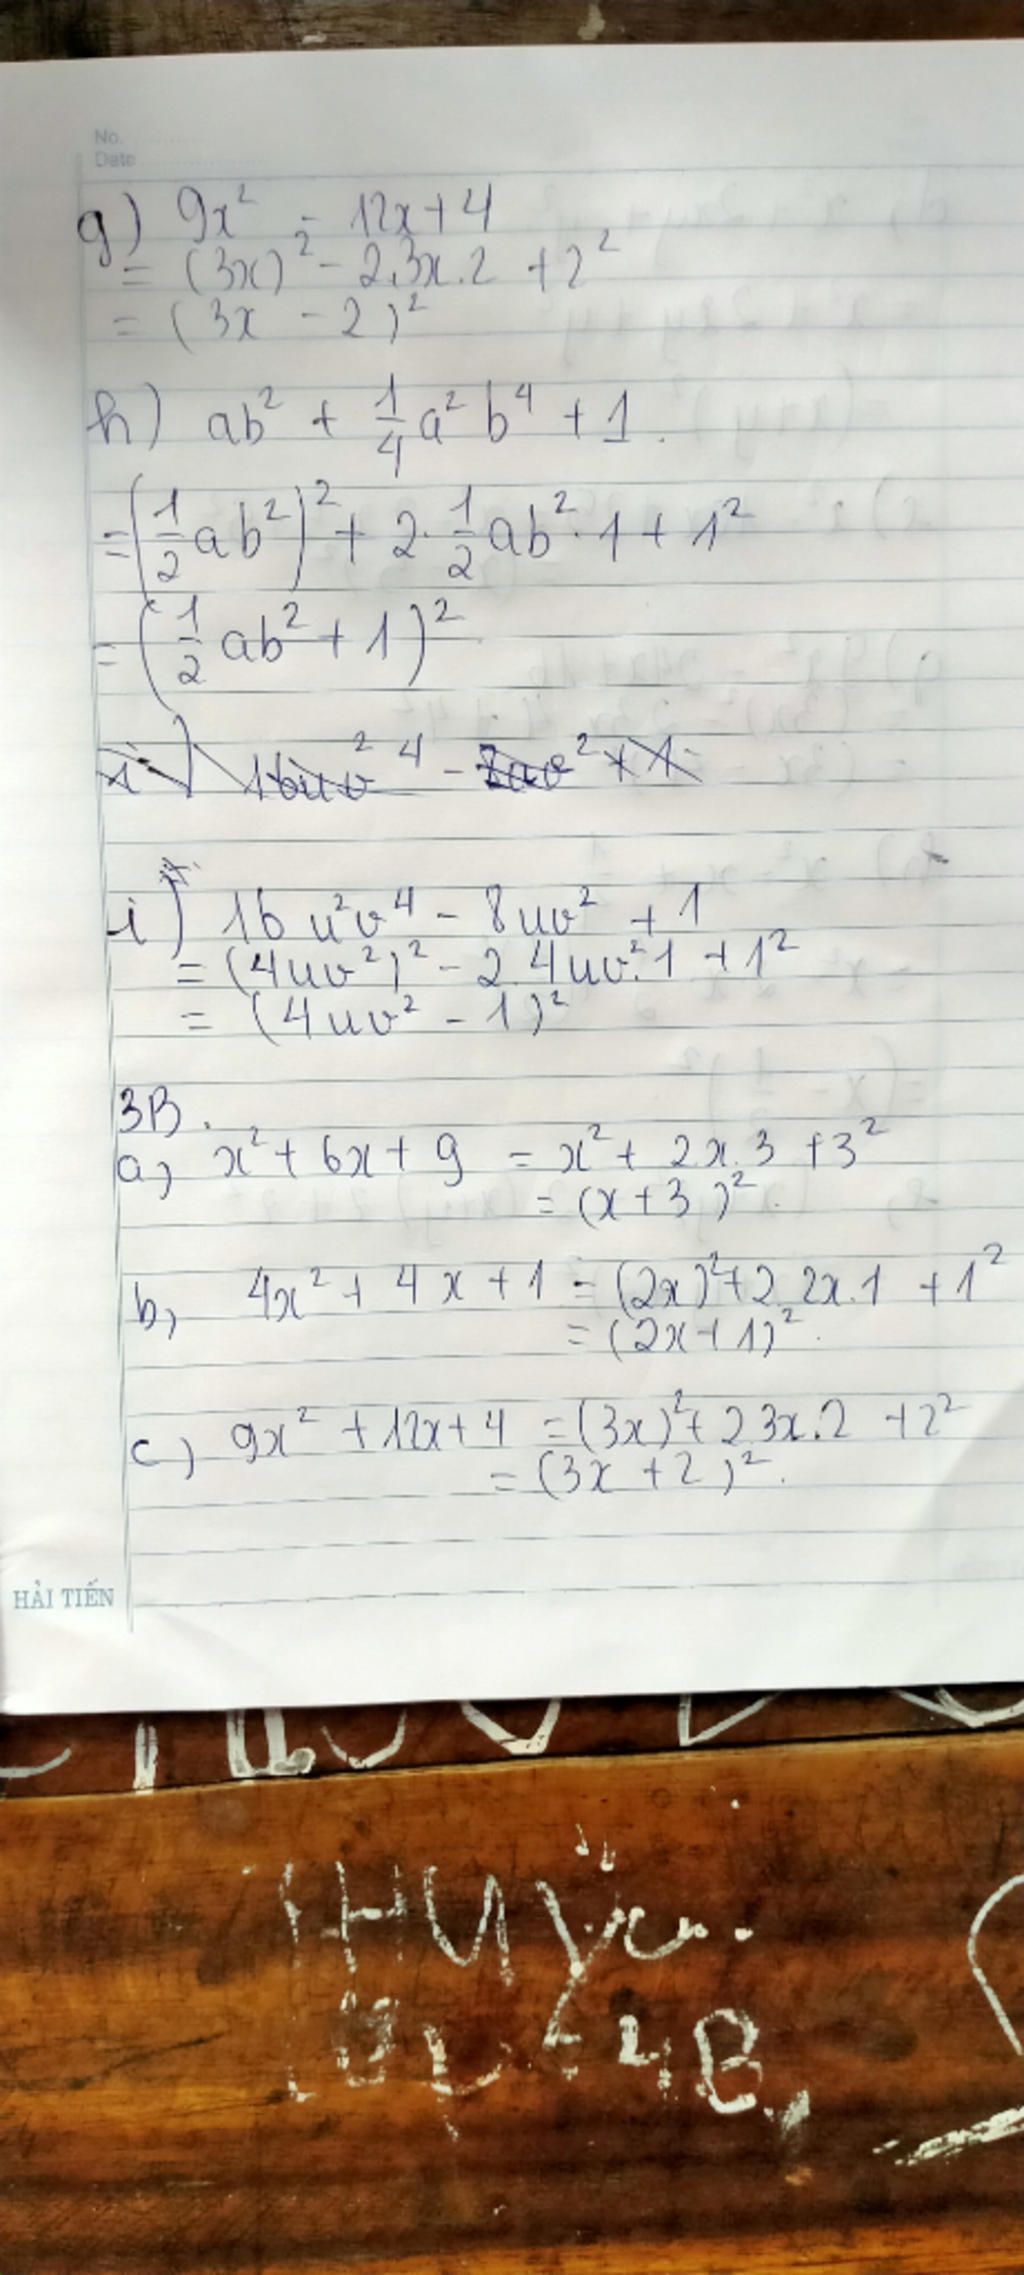 No.
Date
g) 9x² - 12x + 4
= (3x)² - 2.3x.2 + 2²
= (3x - 2)²
h) ab² + 1/4 a² b⁴ + 1.
= (1/2 ab²)² + 2. 1/2 ab² . 1 + 1²
= (1/2 ab² + 1)²
i) 16u²v⁴ - 8uv² + 1
i) 16 u²v⁴ - 8uv² + 1
= (4uv²)² - 2.4uv².1 + 1²
= (4uv² - 1)²
3B.
a, x² + 6x + 9 = x² + 2.x.3 + 3²
= (x + 3)².
b, 4x² + 4x + 1 = (2x)² + 2.2x.1 + 1²
= (2x + 1)².
c, 9x² + 12x + 4 = (3x)² + 2 3x.2 + 2²
= (3x + 2)².
HẢI TIẾN
4B